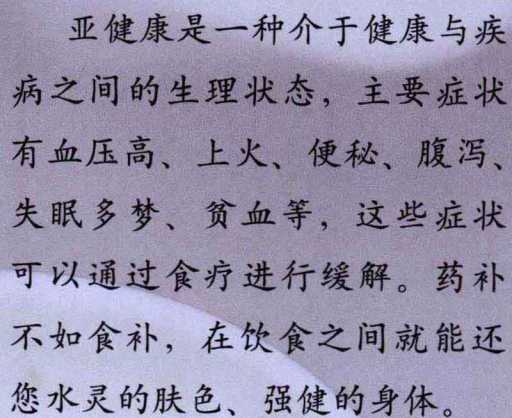 亚健康是一种介于健康与疾
病之间的生理状态，主要症状
有血压高、上火、便秘、腹泻、
失眠多梦、贫血等，这些症状
可以通过食疗进行缓解。药补
不如食补，在饮食之间就能还
您水灵的肤色、强健的身体。